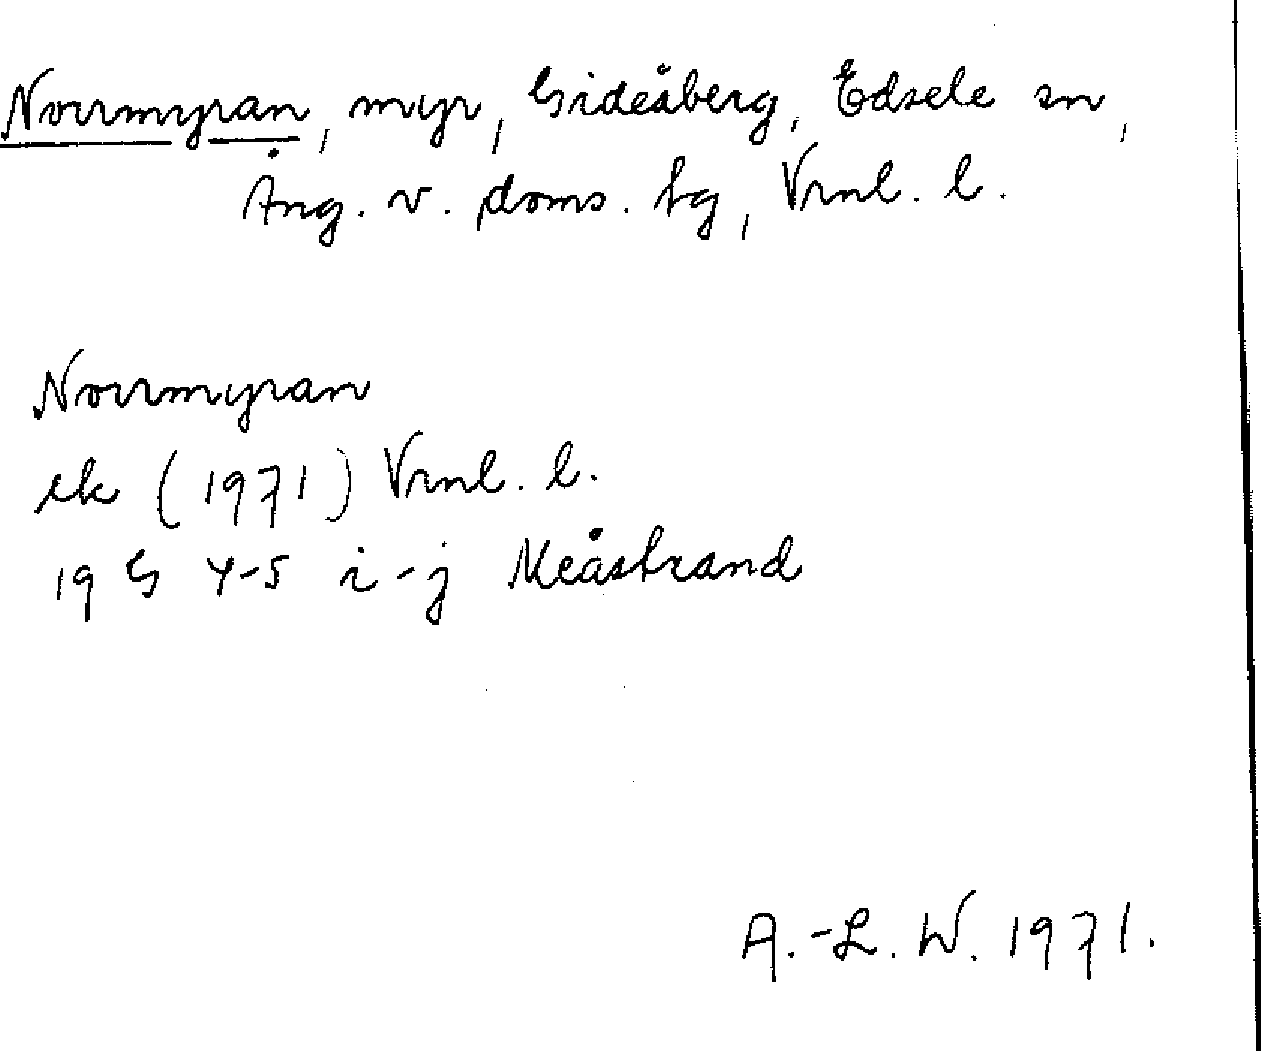 Norrmyran, myr, Gideåberg, Edsele sn,
Ång. v. doms. tg, Vrnl. l.
Norrmyran
ek (1971) Vrnl. l.
19 G 4-5 i-j Meåstrand
A.-L. W. 1971.